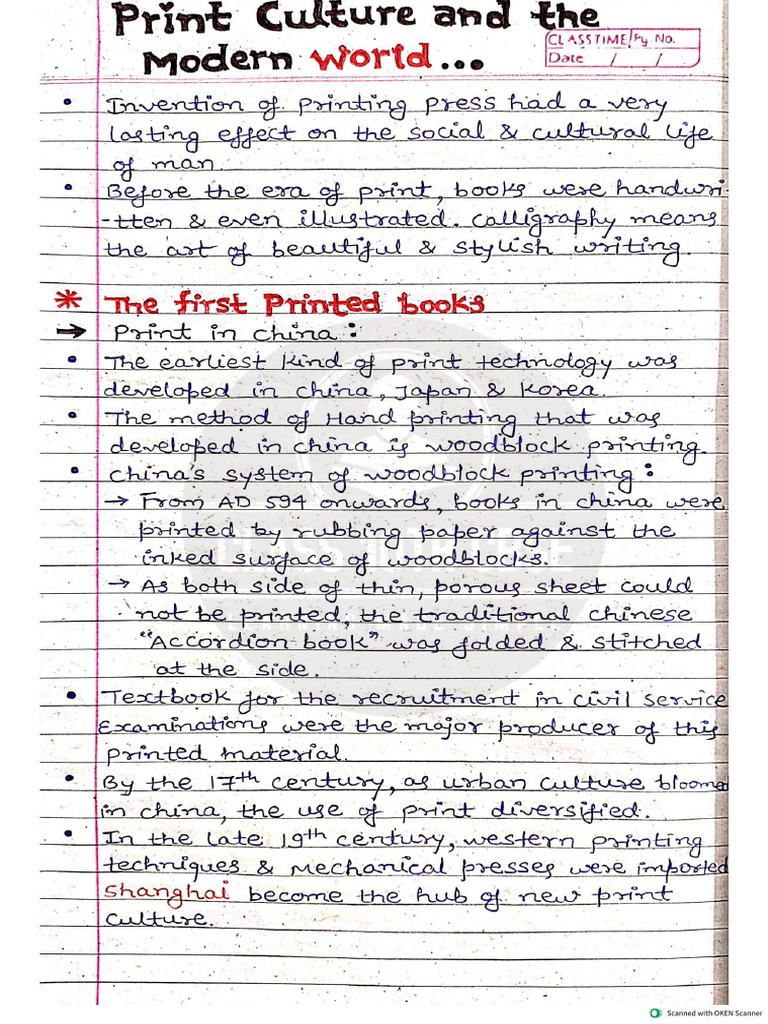 Print Culture and the
Modern World...
CLASSTIME/Pg No.
Date / /
• Invention of printing press had a very
lasting effect on the social & cultural life
of man.
• Before the era of print, books were handwri-
-tten & even illustrated. Calligraphy means
the art of beautiful & stylish writing.
* The first Printed books
→ Print in china:
• The earliest kind of print technology was
developed in china, Japan & Korea.
• The method of Hand printing that was
developed in china is woodblock printing.
• China's system of woodblock printing:
→ From AD 594 onwards, books in china were
printed by rubbing paper against the
inked surface of woodblocks.
→ As both side of thin, porous sheet could
not be printed, the traditional chinese
"Accordion book" was folded & stitched
at the side.
• Textbook for the recruitment in civil service
Examinations were the major producer of this
printed material.
• By the 17th century, as urban culture bloomed
in china, the use of print diversified.
• In the late 19th century, western printing
techniques & Mechanical presses were imported
Shanghai become the hub of new print
culture.
Scanned with OKEN Scanner